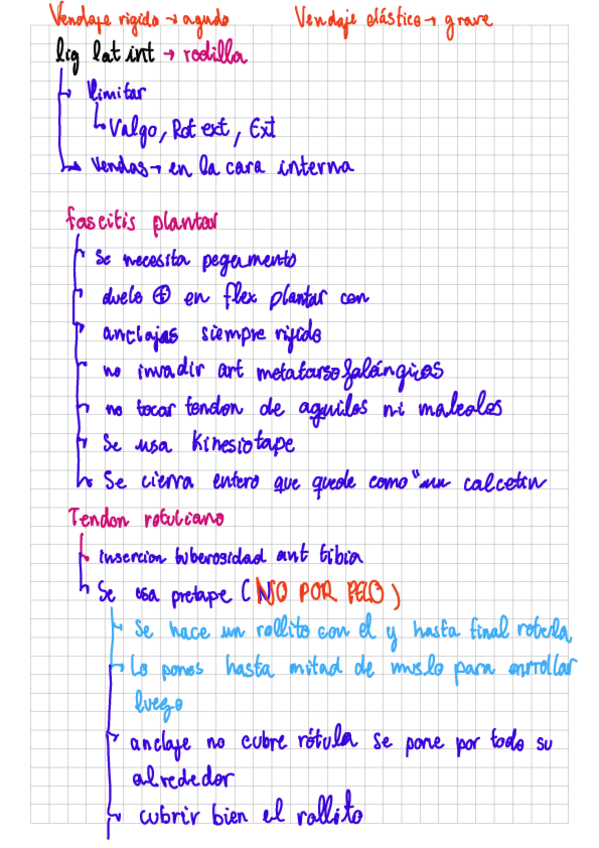 Vendaje rigido → agudo Vendaje elástico → grave
lig lat int → rodilla
limitar
Valgo, Rot ext, Ext
Vendas → en la cara interna
fascitis plantar
Se necesita pegamento
duelo ⊕ en flex plantar con
anclajas siempre rigido
no invadir art metatarsofalángicas
no tocar tendon de aquilos ni maleolos
Se usa Kinesiotape
Se cierra entero que quede como "un calcetin
Tendon rotuliano
insercion tuberosidad ant tibia
Se usa pretape (NO POR PELO)
Se hace un rollito con él y hasta final rotula
Lo pones hasta mitad de muslo para enrrollar
luego
anclaje no cubre rótula se pone por todo su
alrededor
cubrir bien el rollito